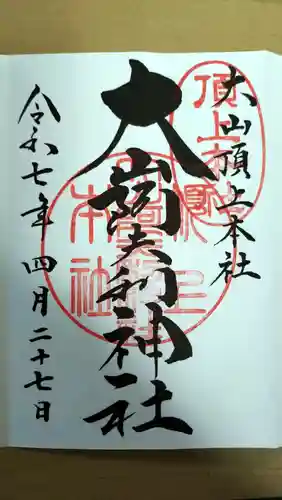 大山頂上本社
大山阿夫利神社
令和七年四月二十七日
頂上本社